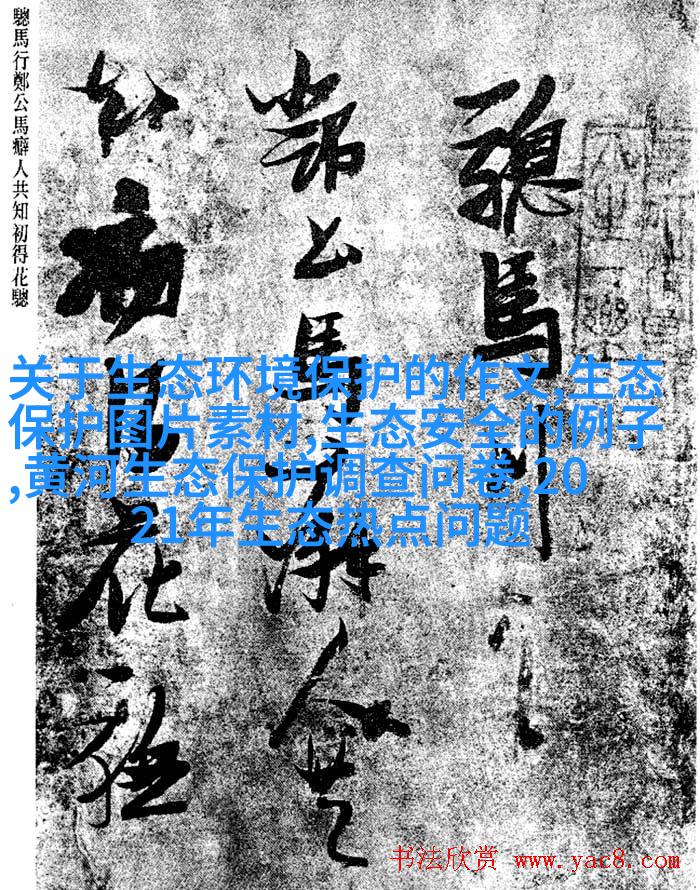 驄馬行
鄭公馬癖人共
知初得花驄
驄馬行鄭公馬癖人共知初得花驄
关于生态环境保护的作文,生态
保护图片素材,生态安全的例子
,黄河生态保护调查问卷,20
21年生态热点问题
书法欣赏 www.yac8.com